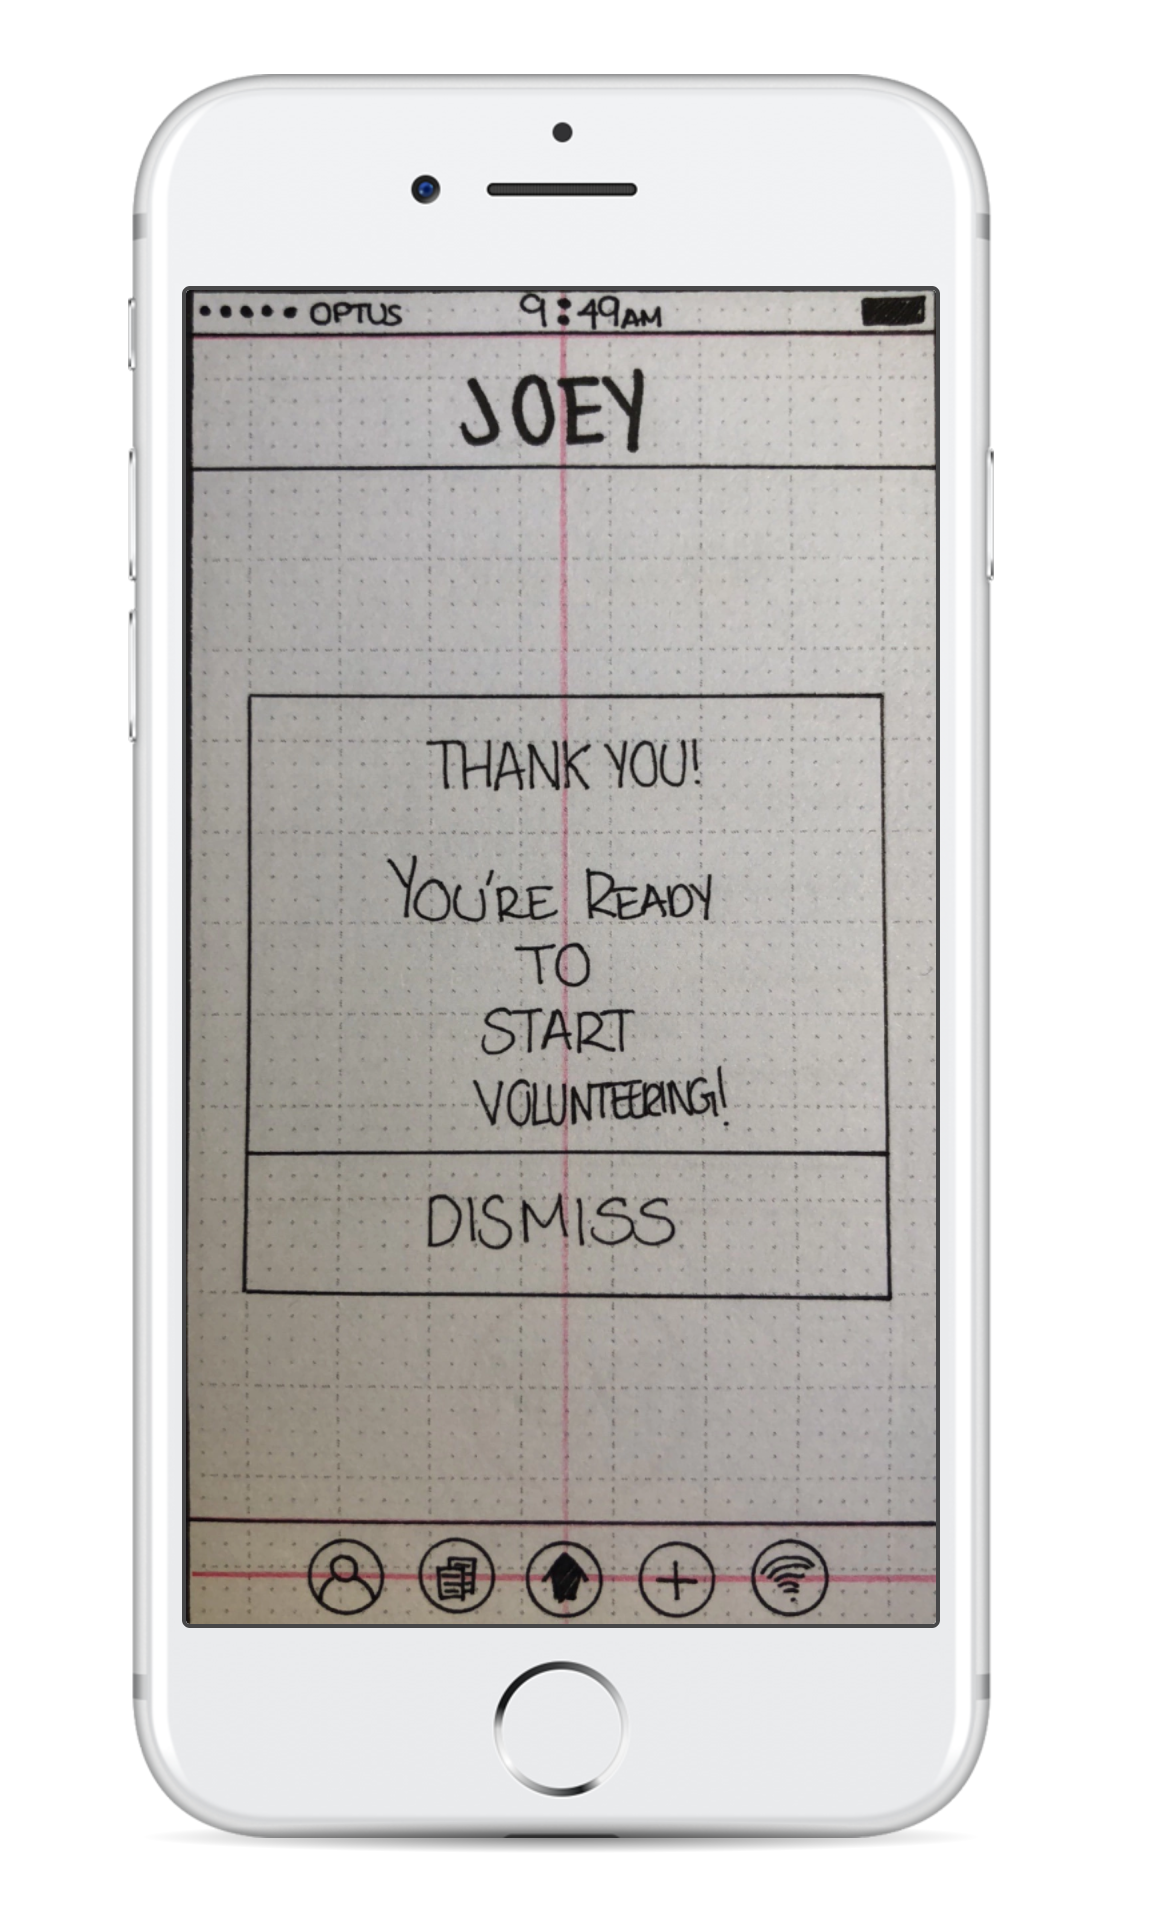 ••••• OPTUS 9:49AM
JOEY
THANK YOU!
YOU'RE READY
TO
START
VOLUNTEERING!
DISMISS